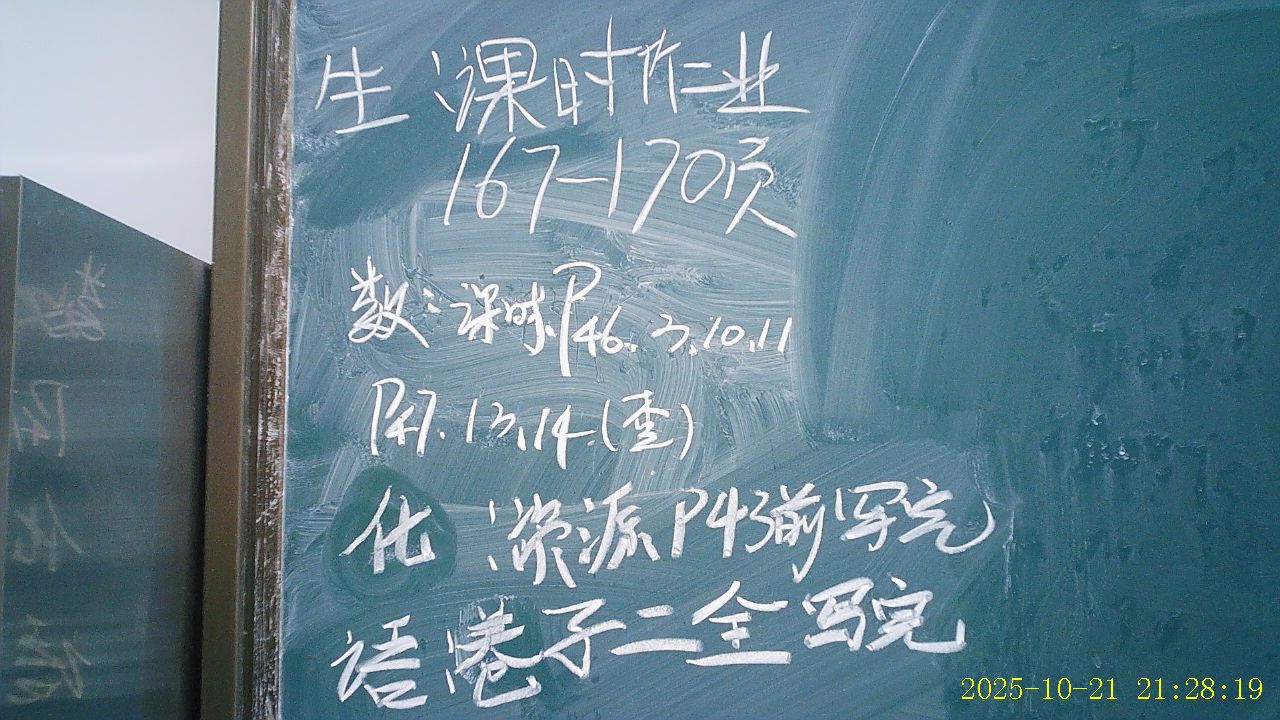 生：课时作业
167-170页
数：课时.P46.3.10.11
P47.13.14.(查)
化：资源P43前写完
语：卷子二全写完
2025-10-21 21:28:19